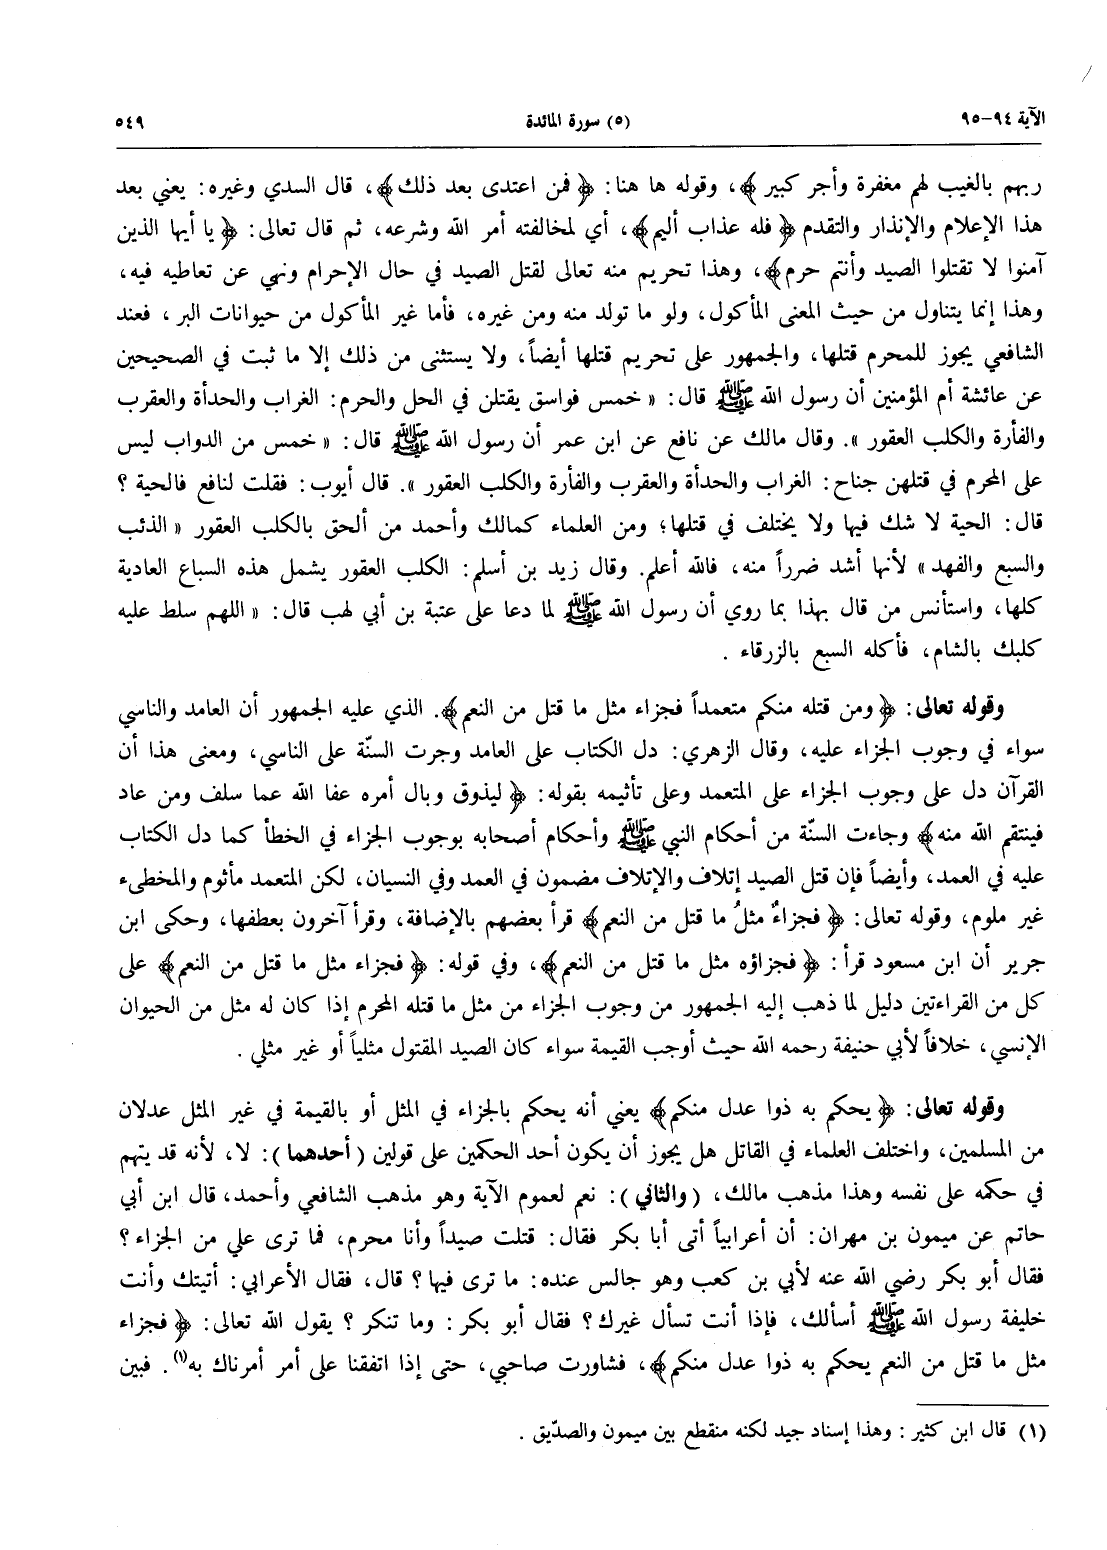 الآية ٩٤-٩٥
(٥) سورة المائدة
٥٤٩
ربهم بالغيب لهم مغفرة وأجر كبير ﴾، وقوله ها هنا: ﴿ فمن اعتدى بعد ذلك﴾، قال السدي وغيره: يعني بعد
هذا الإعلام والإنذار والتقدم ﴿ فله عذاب أليم﴾، أي لمخالفته أمر الله وشرعه، ثم قال تعالى: ﴿ يا أيها الذين
آمنوا لا تقتلوا الصيد وأنتم حرم﴾، وهذا تحريم منه تعالى لقتل الصيد في حال الإحرام ونهي عن تعاطيه فيه،
وهذا إنما يتناول من حيث المعنى المأكول، ولو ما تولد منه ومن غيره، فأما غير المأكول من حيوانات البر، فعند
الشافعي يجوز للمحرم قتلها، والجمهور على تحريم قتلها أيضاً، ولا يستثنى من ذلك إلا ما ثبت في الصحيحين
عن عائشة أم المؤمنين أن رسول الله ﷺ قال: « خمس فواسق يقتلن في الحل والحرم: الغراب والحدأة والعقرب
والفأرة والكلب العقور ». وقال مالك عن نافع عن ابن عمر أن رسول الله ﷺ قال: « خمس من الدواب ليس
على المحرم في قتلهن جناح: الغراب والحدأة والعقرب والفأرة والكلب العقور ». قال أيوب: فقلت لنافع فالحية ؟
قال: الحية لا شك فيها ولا يختلف في قتلها؛ ومن العلماء كمالك وأحمد من ألحق بالكلب العقور « الذئب
والسبع والفهد » لأنها أشد ضرراً منه، فالله أعلم. وقال زيد بن أسلم: الكلب العقور يشمل هذه السباع العادية
كلها، واستأنس من قال بهذا بما روي أن رسول الله ﷺ لما دعا على عتبة بن أبي لهب قال: « اللهم سلط عليه
كلبك بالشام، فأكله السبع بالزرقاء .
وقوله تعالى: ﴿ ومن قتله منكم متعمداً فجزاء مثل ما قتل من النعم﴾. الذي عليه الجمهور أن العامد والناسي
سواء في وجوب الجزاء عليه، وقال الزهري: دل الكتاب على العامد وجرت السنّة على الناسي، ومعنى هذا أن
القرآن دل على وجوب الجزاء على المتعمد وعلى تأثيمه بقوله: ﴿ ليذوق وبال أمره عفا الله عما سلف ومن عاد
فينتقم الله منه﴾ وجاءت السنّة من أحكام النبي ﷺ وأحكام أصحابه بوجوب الجزاء في الخطأ كما دل الكتاب
عليه في العمد، وأيضاً فإن قتل الصيد إتلاف والإتلاف مضمون في العمد وفي النسيان، لكن المتعمد مأثوم والمخطىء
غير ملوم، وقوله تعالى: ﴿ فجزاءٌ مثلُ ما قتل من النعم﴾ قرأ بعضهم بالإضافة، وقرأ آخرون بعطفها، وحكى ابن
جرير أن ابن مسعود قرأ: ﴿ فجزاؤه مثل ما قتل من النعم﴾، وفي قوله: ﴿ فجزاء مثل ما قتل من النعم﴾ على
كل من القراءتين دليل لما ذهب إليه الجمهور من وجوب الجزاء من مثل ما قتله المحرم إذا كان له مثل من الحيوان
الإنسي، خلافاً لأبي حنيفة رحمه الله حيث أوجب القيمة سواء كان الصيد المقتول مثلياً أو غير مثلي .
وقوله تعالى: ﴿ يحكم به ذوا عدل منكم﴾ يعني أنه يحكم بالجزاء في المثل أو بالقيمة في غير المثل عدلان
من المسلمين، واختلف العلماء في القاتل هل يجوز أن يكون أحد الحكمين على قولين (أحدهما): لا، لأنه قد يتهم
في حكمه على نفسه وهذا مذهب مالك، (والثاني): نعم لعموم الآية وهو مذهب الشافعي وأحمد، قال ابن أبي
حاتم عن ميمون بن مهران: أن أعرابياً أتى أبا بكر فقال: قتلت صيداً وأنا محرم، فما ترى علي من الجزاء؟
فقال أبو بكر رضي الله عنه لأبي بن كعب وهو جالس عنده: ما ترى فيها؟ قال، فقال الأعرابي: أتيتك وأنت
خليفة رسول الله ﷺ أسألك، فإذا أنت تسأل غيرك؟ فقال أبو بكر: وما تنكر؟ يقول الله تعالى: ﴿ فجزاء
مثل ما قتل من النعم يحكم به ذوا عدل منكم﴾، فشاورت صاحبي، حتى إذا اتفقنا على أمر أمرناك به(١). فبين
(١) قال ابن كثير: وهذا إسناد جيد لكنه منقطع بين ميمون والصدّيق .